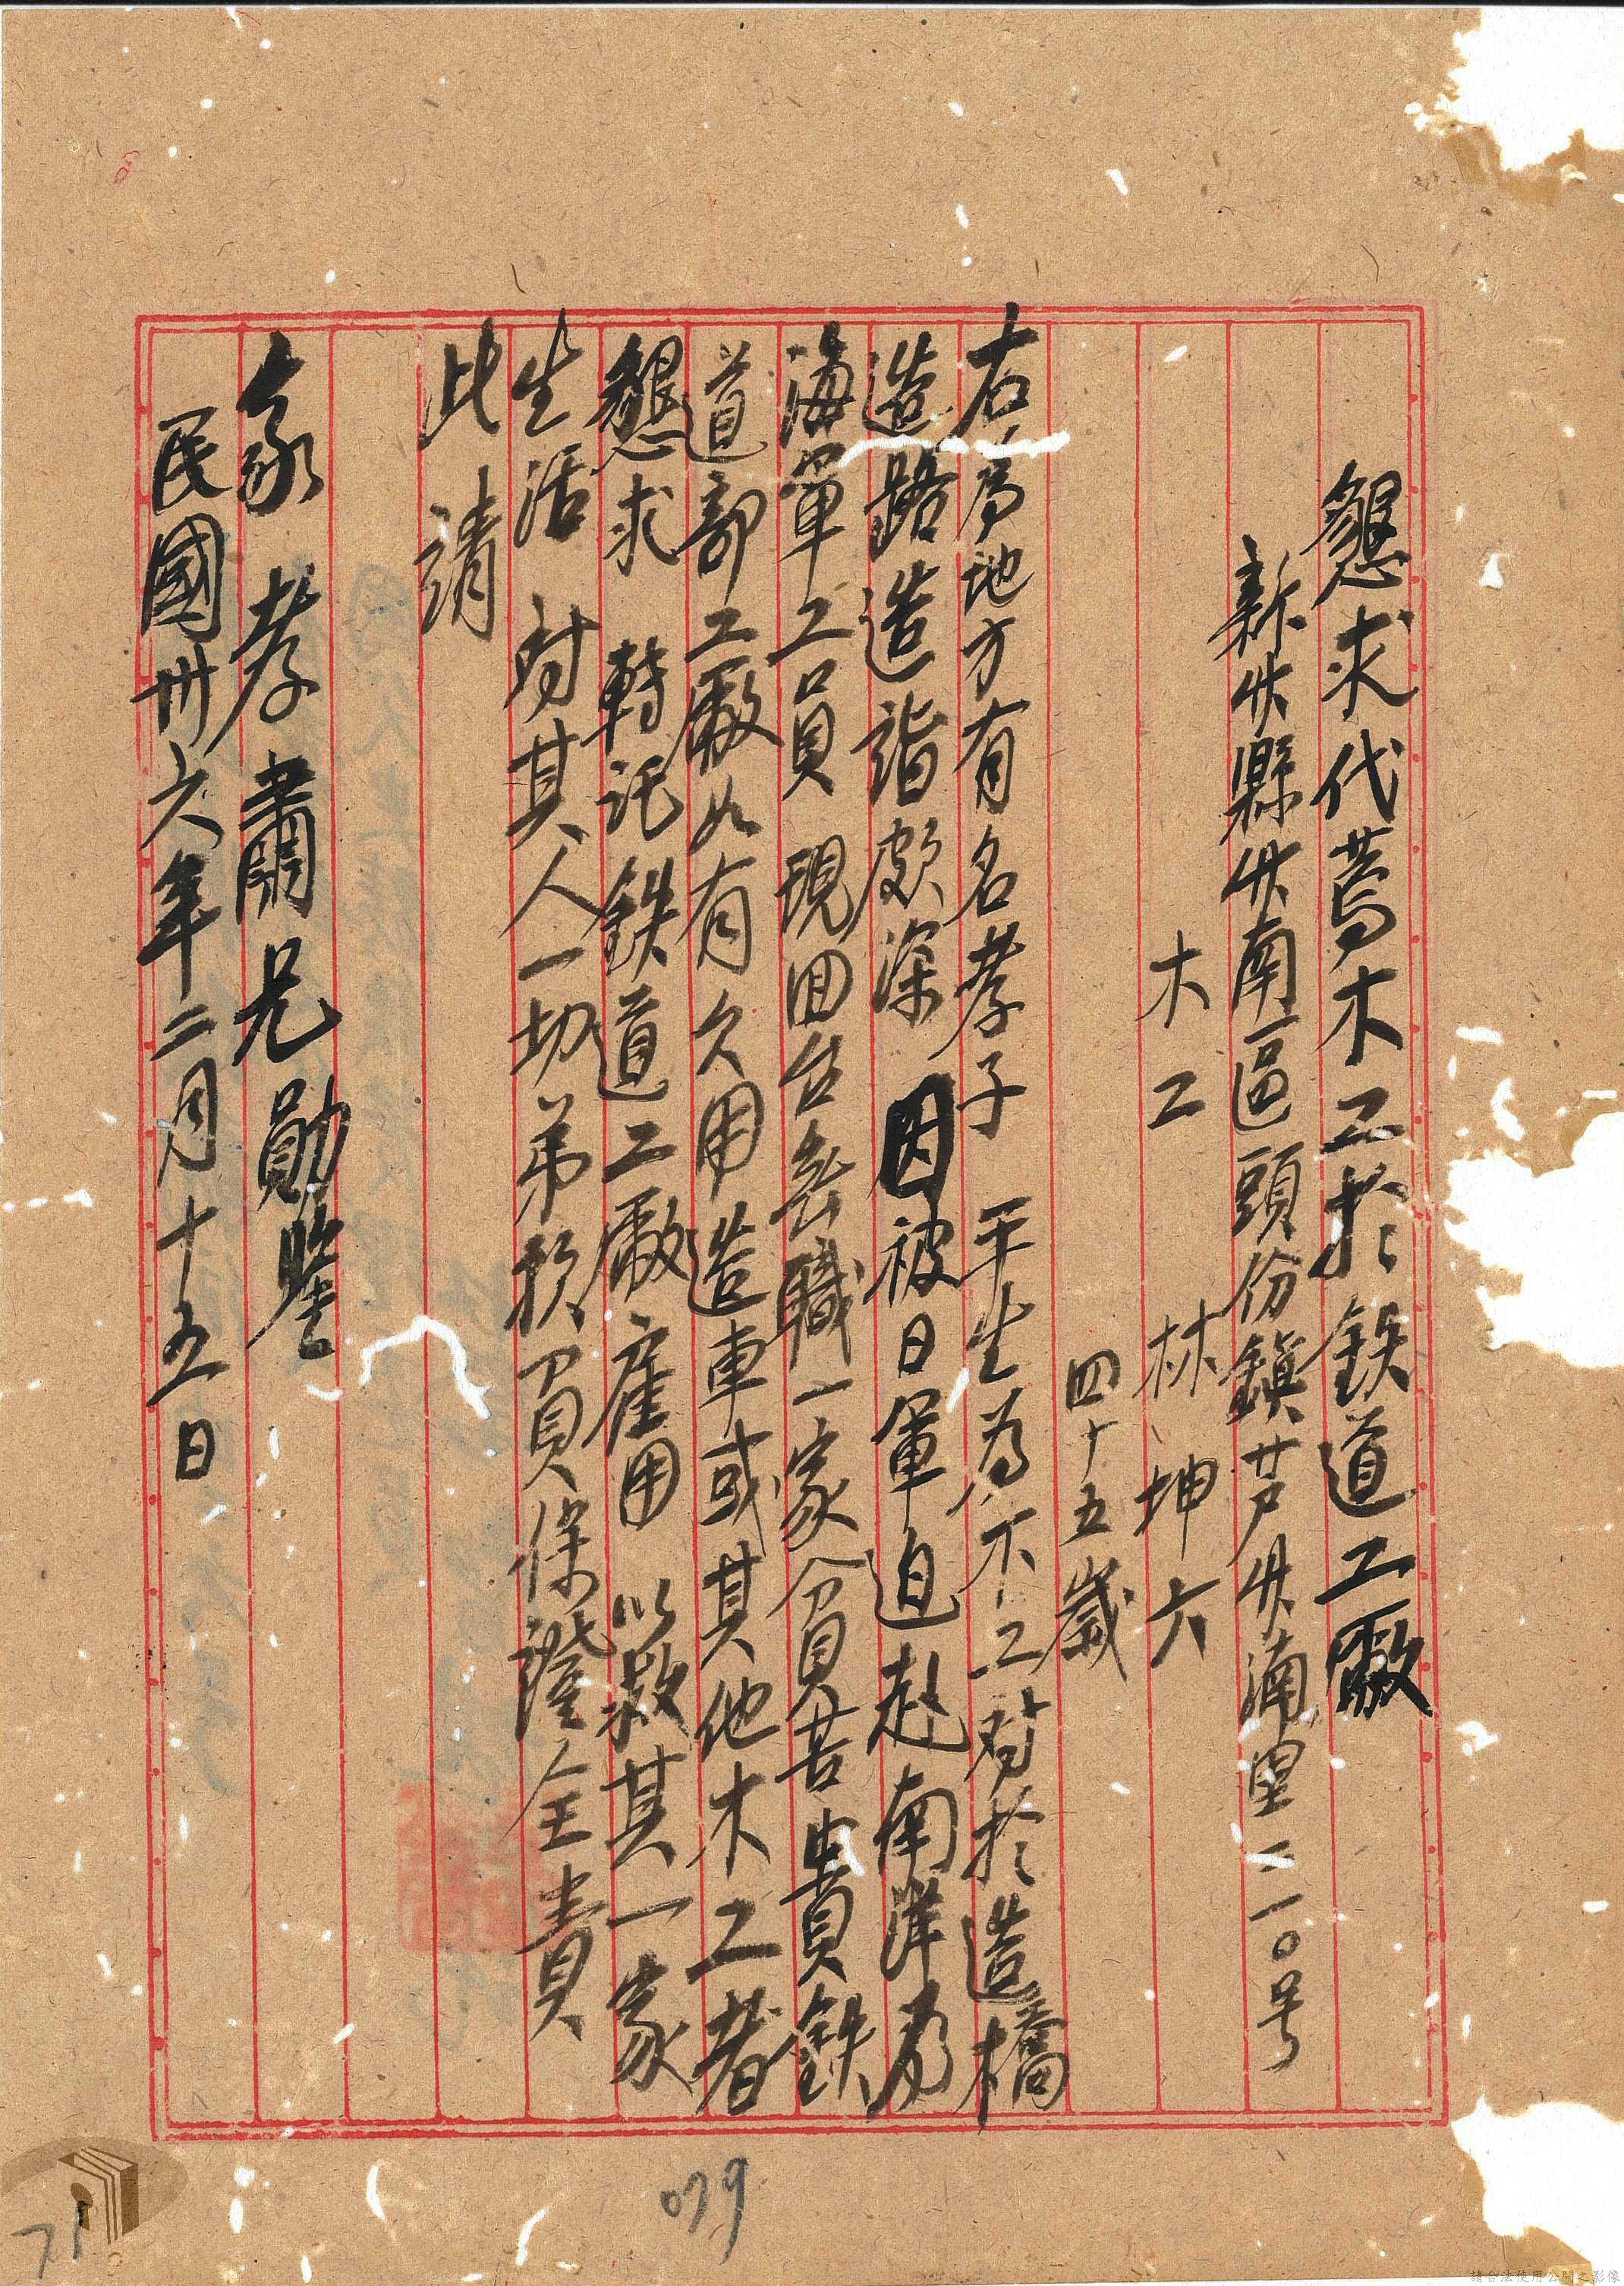 懇求代荐木工於鉄道工廠
新竹縣竹南區頭份鎮芦竹湳里二一〇号
木工 林坤六
四十五歲
右為地方有名孝子 平生為木工对於造橋
造路造詣頗深 因被日軍迫赴南洋為
海軍工員 現回台無職一家貧苦貴鉄
道部工廠如有欠用造車或其他木工者
懇求 轉託鉄道工廠雇用 以救其一家
生活 対其人一切弟扵負保證全責
此請
家孝肅兄勛鑒
民國卅六年二月十五日
079
71
請合法使用公開之影像